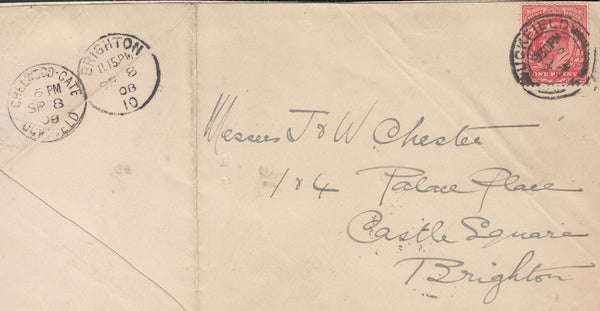 CHELWOOD-GATE
6 PM
SP 8
08
UCKFIELD
BRIGHTON
11.15 PM
SP 8
08
10
UCKFIELD
ONE PENNY
Messers J & W Chester
1 & 4 Palace Place
Castle Square
Brighton